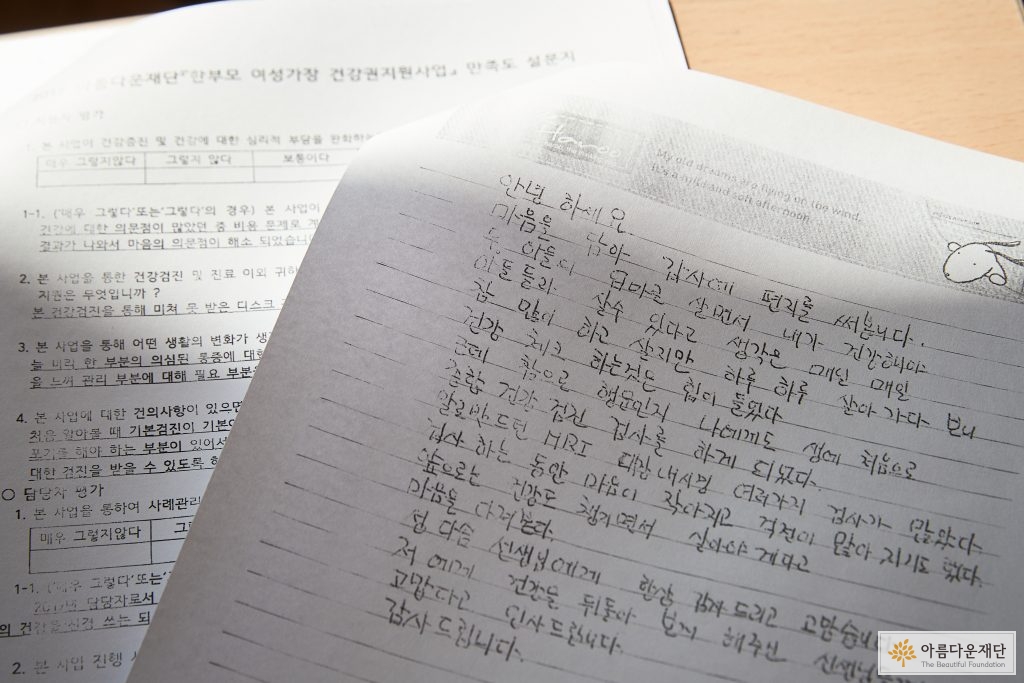 아름다운재단『한부모 여성가장 건강권지원사업』 만족도 설문지
평가
1. 본 사업이 건강증진 및 건강에 대한 심리적 부담을 완화하는
매우 그렇지않다 그렇지 않다 보통이다
1-1. ('매우 그렇다'또는'그렇다'의 경우) 본 사업이
건강에 대한 의문점이 많았던 중 비용 문제로
결과가 나와서 마음의 의문점이 해소 되었습니
2. 본 사업을 통한 건강검진 및 진료 이외 귀하
지원은 무엇입니까 ?
본 건강검진을 통해 미쳐 못 받은 디스크
3. 본 사업을 통해 어떤 생활의 변화가
늘 미뤄 한 부분의 의심된 통증에 대한
을 느껴 관리 부분에 대해 필요 부분을
4. 본 사업에 대한 건의사항이 있으면
처음 알아볼 때 기본검진이 기본이
포기를 해야 하는 부분이 있어서
대한 검진을 받을 수 있도록
○ 담당자 평가
1. 본 사업을 통하여 사례관리
매우 그렇지않다
1-1. ('매우 그렇다'또는'
2017년 담당자로서
의 건강을 신경 쓰는
2. 본 사업 진행
Honee
My old dreams are flying on the wind.
It's a mild and soft afternoon.
안녕 하세요
마음을 담아 감사에 편지를 써봅니다.
두 아들의 엄마로 살면서 내가 건강해야
아들들과 살수 있다고 생각은 매일 매일
참 많이 하고 살지만 하루 하루 살아 가다 보니
건강 체크 하는것은 힘이 들었다
근데 참으로 행운인지 나에게도 생에 처음으로
종합 건강 검진 검사를 하게 되었다.
말로만듣던 MRI 대장내시경 여러가지 검사가 많았다
검사 하는 동안 마음이 작아지고 걱정이 많아 지기도 했다.
앞으로는 건강도 챙기면서 살아야 겠다고
마음을 다져본다.
선생님에게 항상 감사 드리고 고맙습니다
저 에게 건강을 뒤돌아 보게 해주신
고맙다고 인사드립니다.
감사 드립니다.
아름다운재단
The Beautiful Foundation